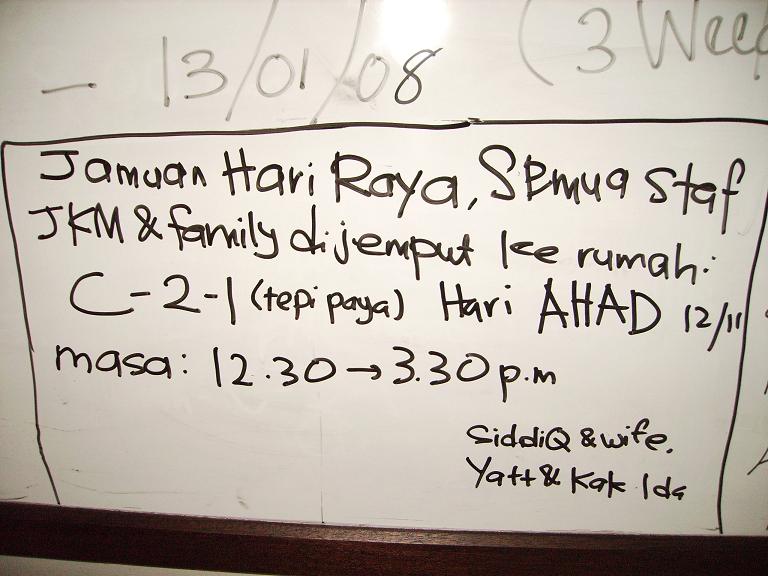 — 13/01/08 (3 Week
Jamuan Hari Raya, Semua staf
JKM & family dijemput ke rumah:
C-2-1 (tepi paya) Hari AHAD 12/11
masa: 12.30 → 3.30 p.m
SiddiQ & wife.
Yatt & Kak Ida